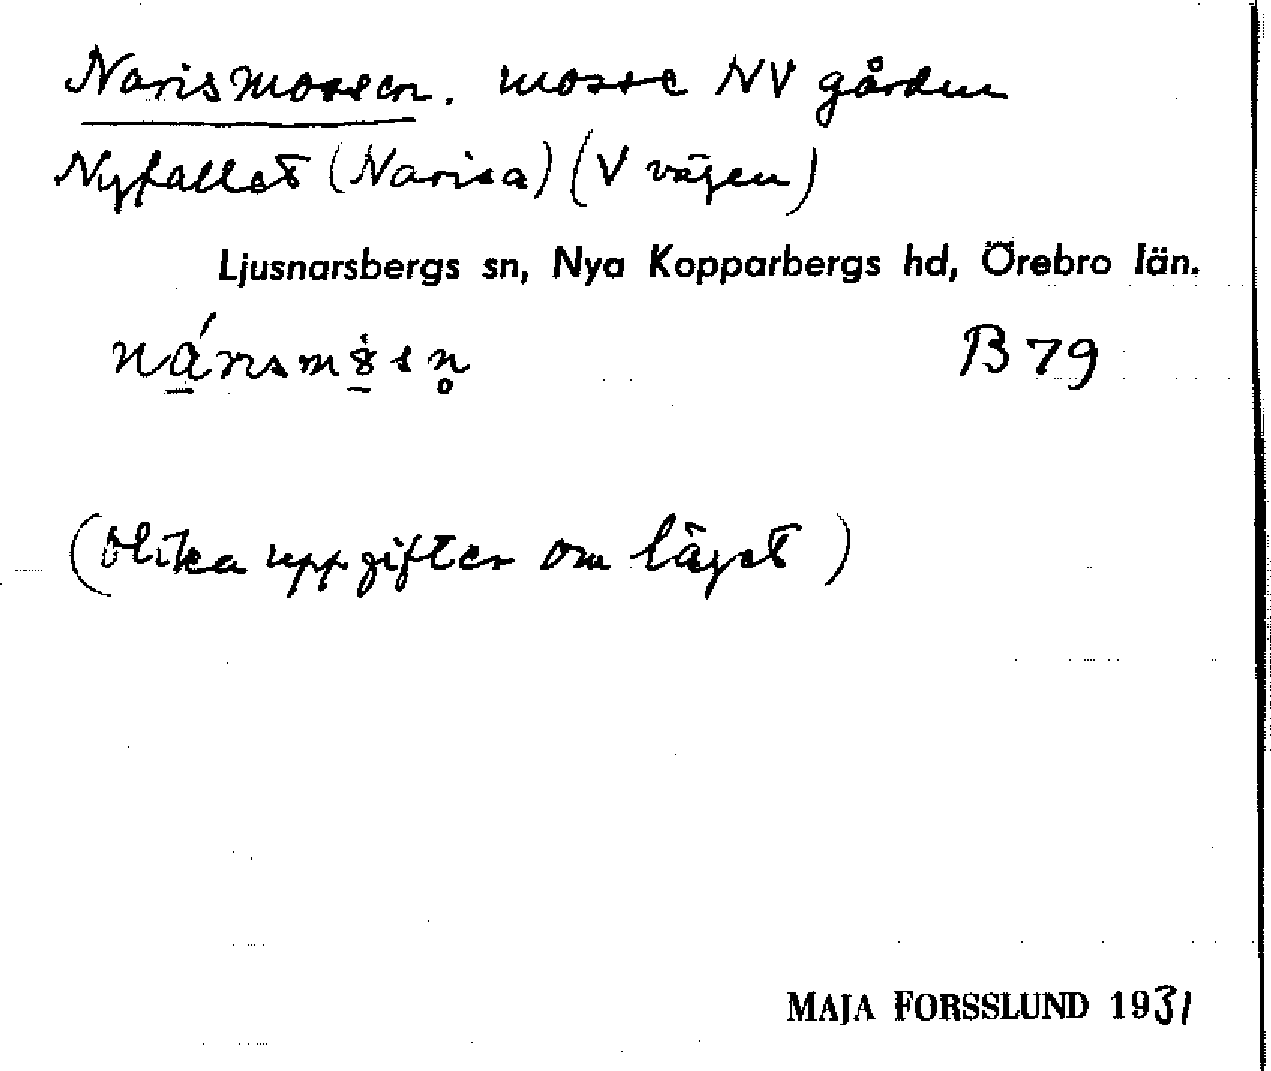 Narismossen. mosse NV gården
Nyfallet (Narisa) (V vägen)
Ljusnarsbergs sn, Nya Kopparbergs hd, Örebro län.
B 79
(Olika uppgifter om läget)
MAJA FORSSLUND 1931